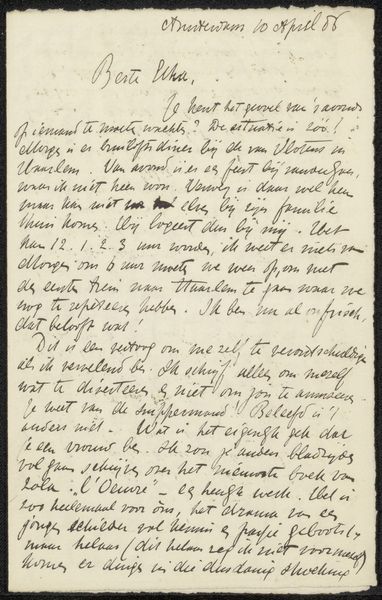 Amsterdam 10 April 86
Beste Etha,
Je kent het gevoel van 's avonds
op iemand te moeten wachten? De situatie is zóó!
Morgen is er bruiloftsdiner bij de van Vlotens in
Haarlem. Van avond is er een feest bij
waar ik niet heen wou. Verwey is daar wel heen
maar kan niet bij zijn familie
thuis komen. Hij logeert dus bij mij. Het
kan 12. 1. 2. 3 uur worden, ik weet er niets van
Morgen om 6 uur moeten we weer op, om met
de eerste trein naar Haarlem te gaan waar we
nog te repeteeren hebben. Ik ben nu al onfrisch,
dat belooft wat!
Dit is een betoog om me zelf te verontschuldigen
als ik vervelend ben. Ik schrijf alleen om mezelf
wat te diverteeren en niet om jou te amuseeren
Je weet van de snippermand! Beleefd is 't
anders niet. Wat is het eigenlijk gek dat
je een vrouw bent. Ik zou je anders bladzijden
vol gaan schrijven over het nieuwste boek van
Zola "L'Oeuvre" — een heugh werk. Het is
zoo heelemaal voor ons, het drama van een
jonge schilder vol kennis en
maar helaas (dit helaas zeg ik niet voor mezelf)
komen er dingen in die dusdanig